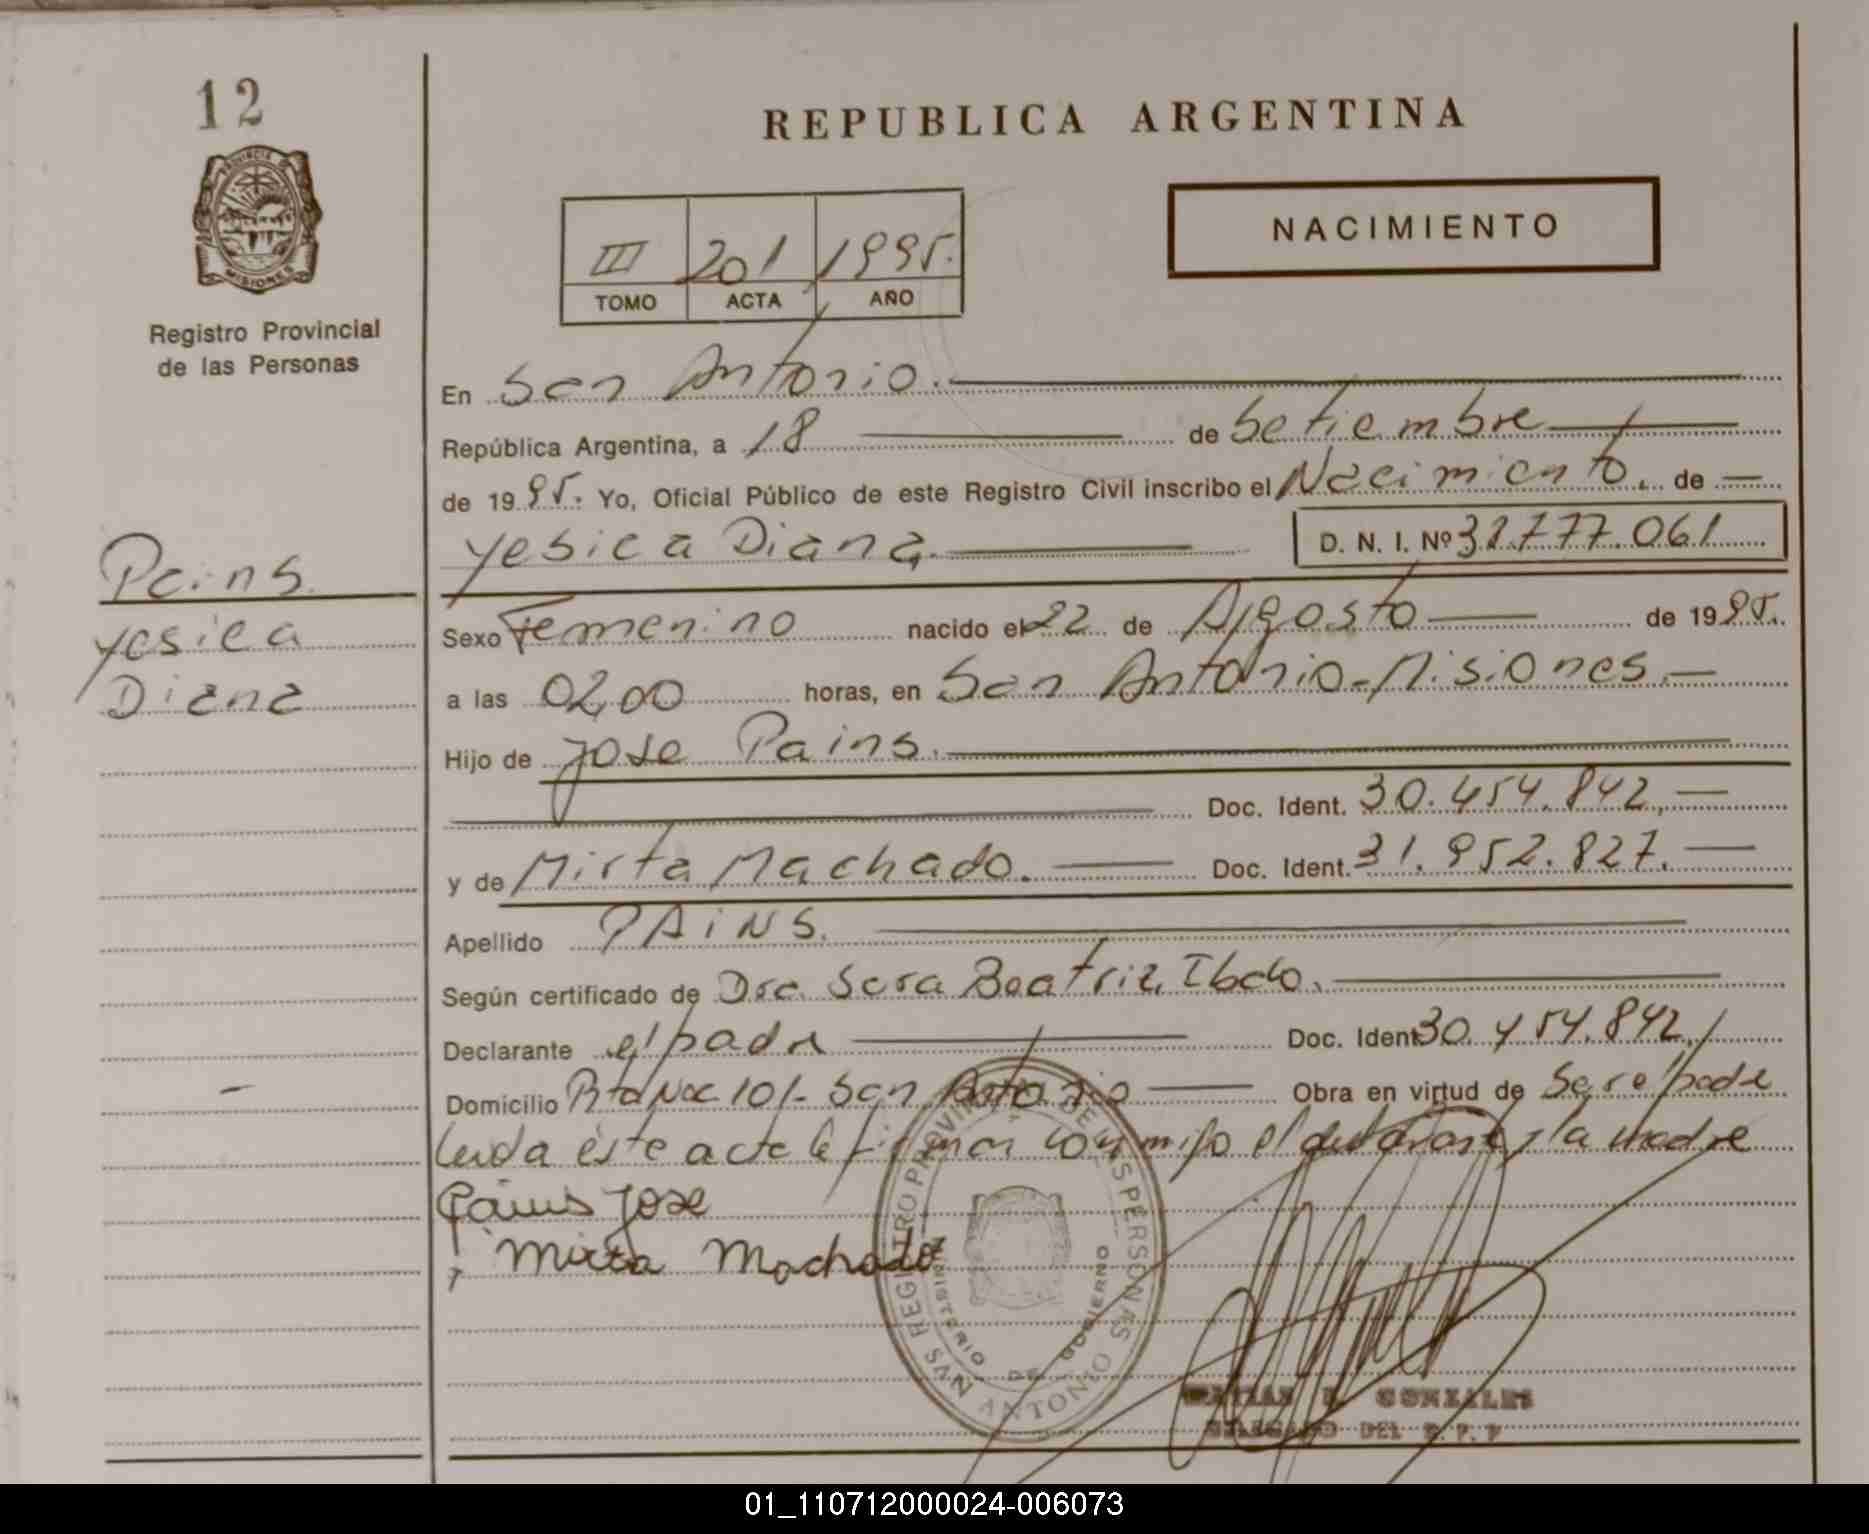 12
REPUBLICA ARGENTINA
PROVINCIA DE
MISIONES
Registro Provincial
de las Personas
III 201 1995.
TOMO ACTA AÑO
NACIMIENTO
En San Antonio.
República Argentina, a 18 de Setiembre
de 1995. Yo, Oficial Público de este Registro Civil inscribo el Nacimiento. de
Yesica Diana. D. N. I. Nº 38.777.061
Pains.
Yesica
Diana
Sexo Femenino nacido el 22 de Agosto de 1995.
a las 02,00 horas, en San Antonio-Misiones.
Hijo de Jose Pains.
Doc. Ident. 30.454.842,
y de Mirta Machado. Doc. Ident. 31.952.827.
Apellido PAiNS.
Según certificado de Dra. Sara Beatriz
Declarante el padre Doc. Ident 30.454.842,
Domicilio 101- San Antonio Obra en virtud de Ser el padre
Leida éste acta la firman conmigo el declarante y la madre
Pains Jose
Mirta Machado
REGISTRO PROVINCIAL DE LAS PERSONAS
MINISTERIO DE GOBIERNO
SAN ANTONIO
GONZALES
DELEGADO DEL R.P.P
01_110712000024-006073